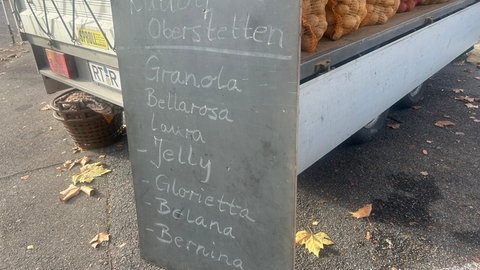 Oberstetten
Granola
Bellarosa
Laura
- Jelly
- Glorietta
- Belana
- Bernina
RT R